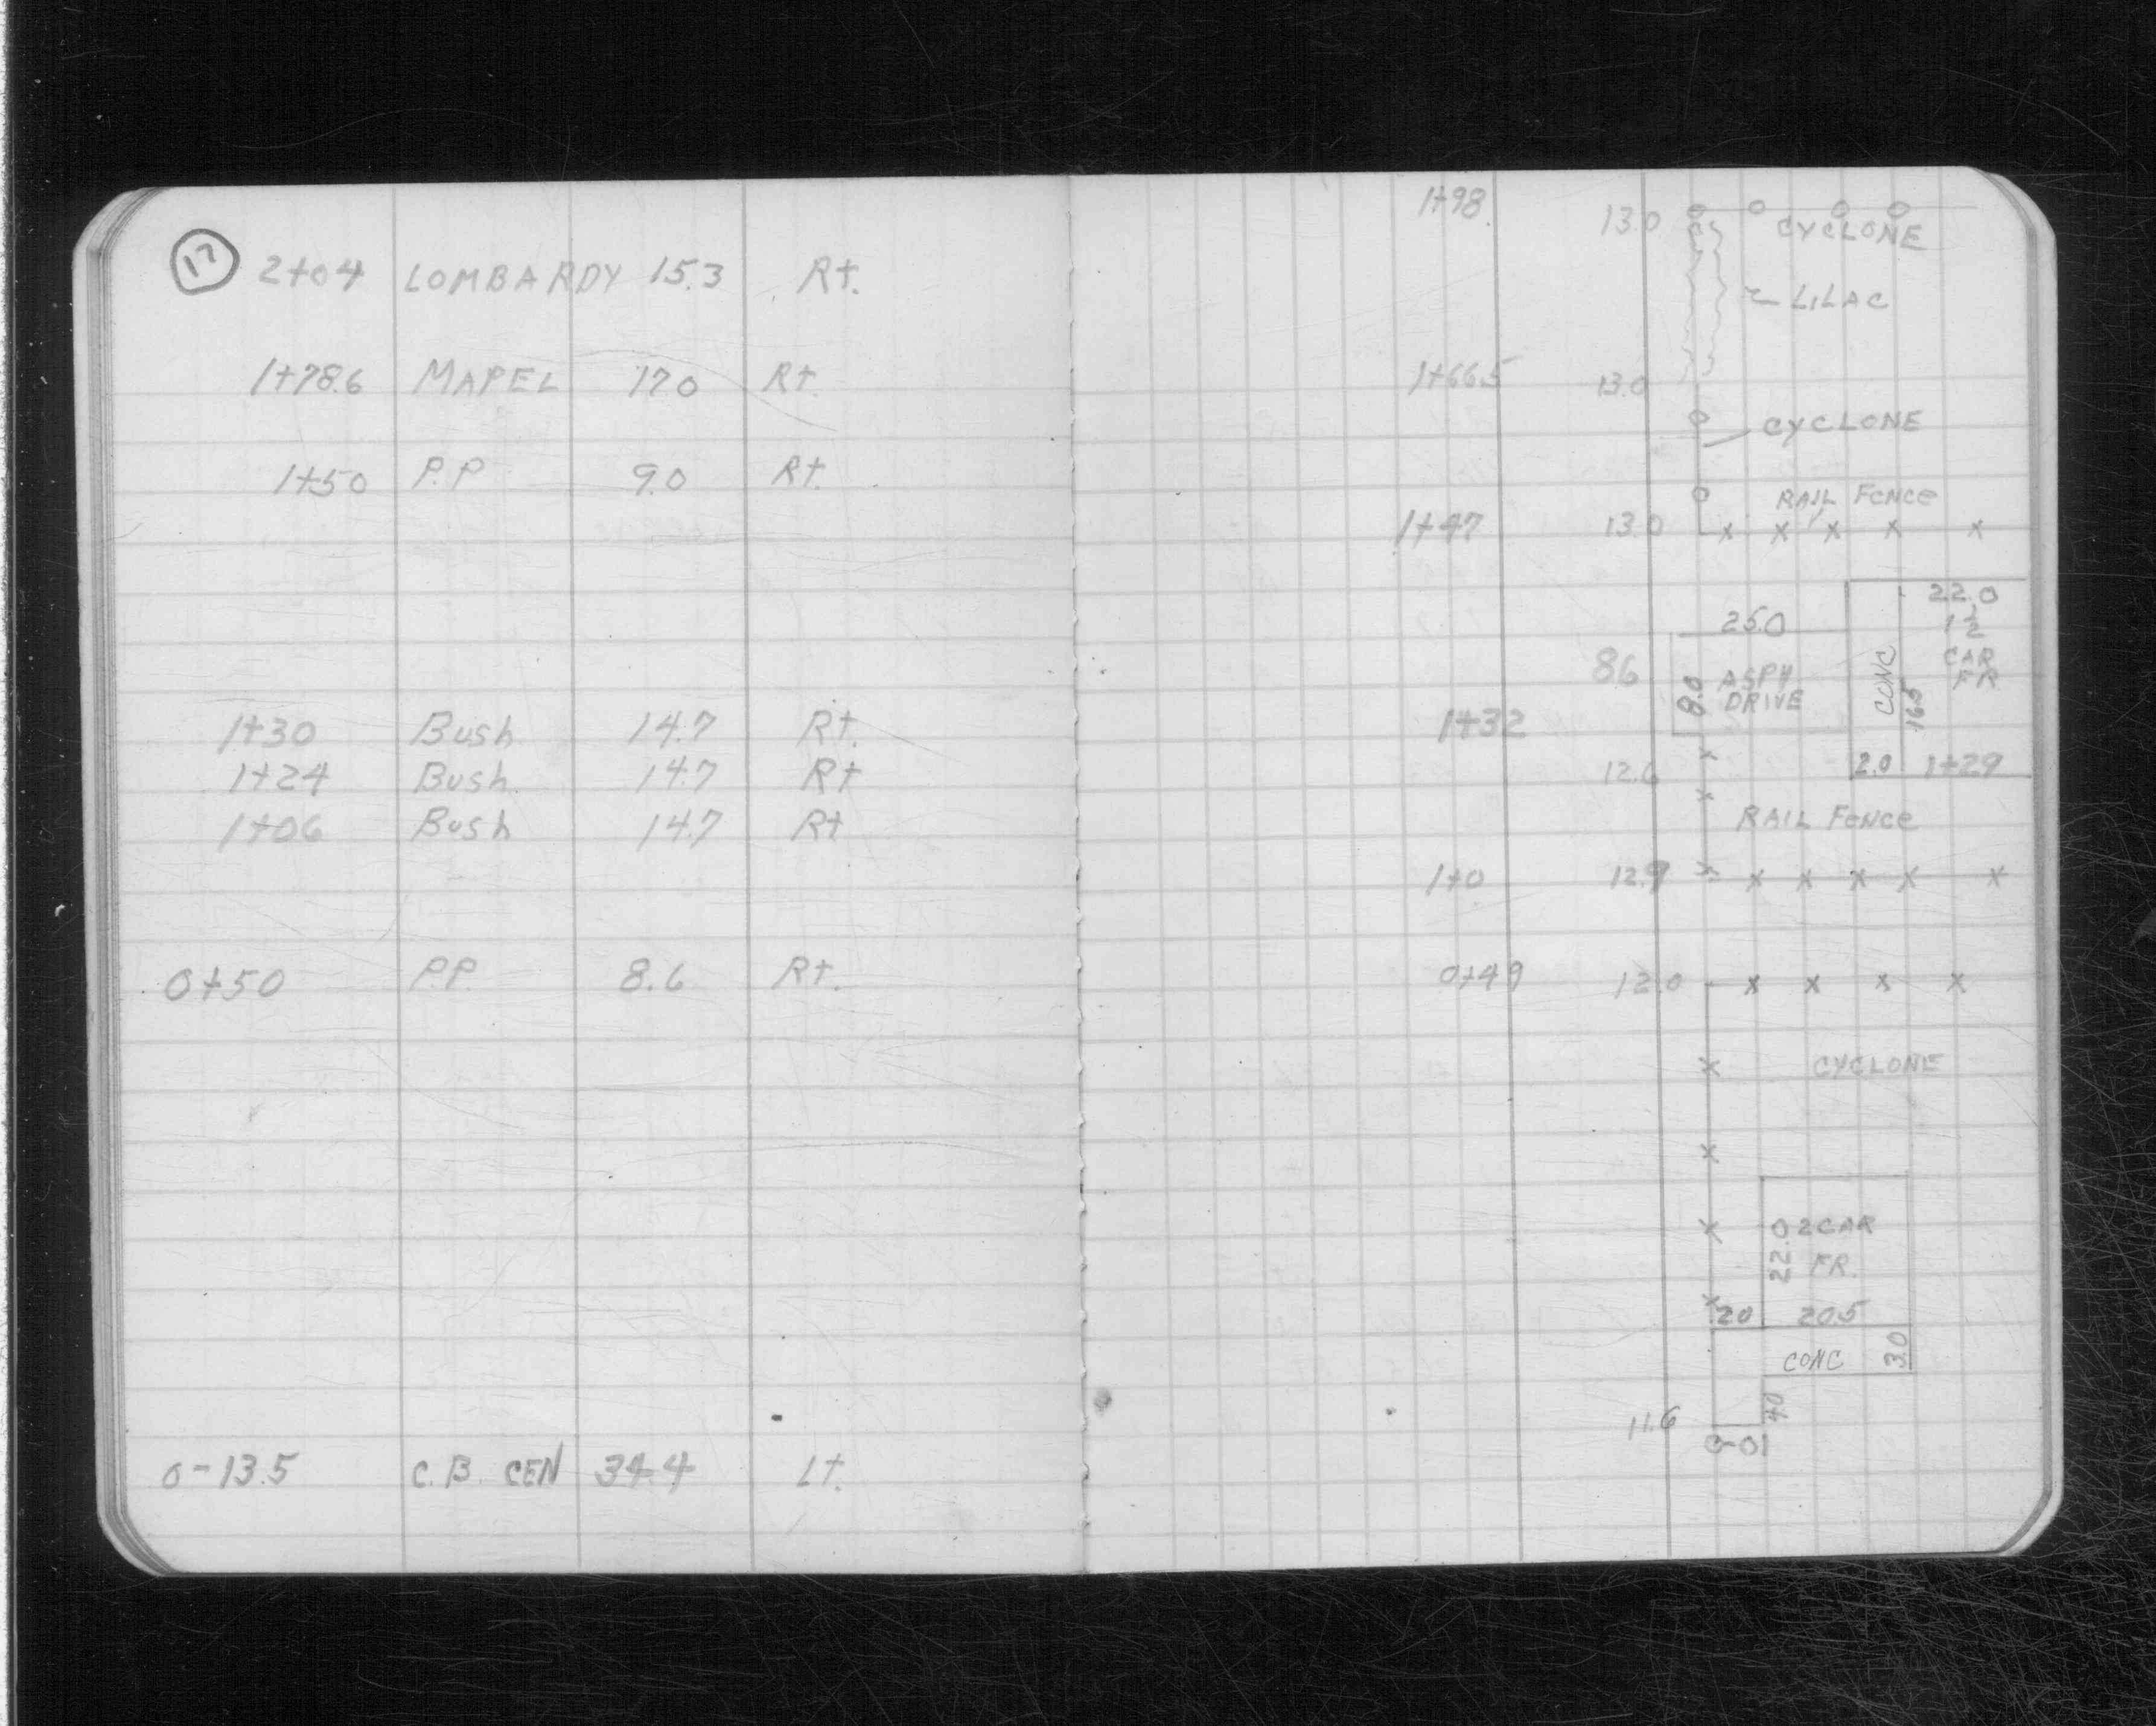 17
2+04 LOMBARDY 15.3 Rt.
1+78.6 MAPEL 17.0 Rt.
1+50 P.P 9.0 Rt.
1+30 Bush 14.7 Rt.
1+24 Bush. 14.7 Rt
1+06 Bush 14.7 Rt
0+50 P.P. 8.6 Rt.
0-13.5 C.B. CEN 34.4 Lt.
1+98. 13.0
CYCLONE
LILAC
1+66.5 13.0
CYCLONE
RAIL FENCE
1+47 13.0
22.0
25.0 1½
8.6 8.0 ASPH. CONC 16.5 CAR
DRIVE FR
1+32
12.6 2.0 1+29
RAIL FENCE
1+0 12.9
0+49 12.0
CYCLONE
22.0 2 CAR
FR.
2.0 20.5
CONC 3.0
11.6 4.0
0-01